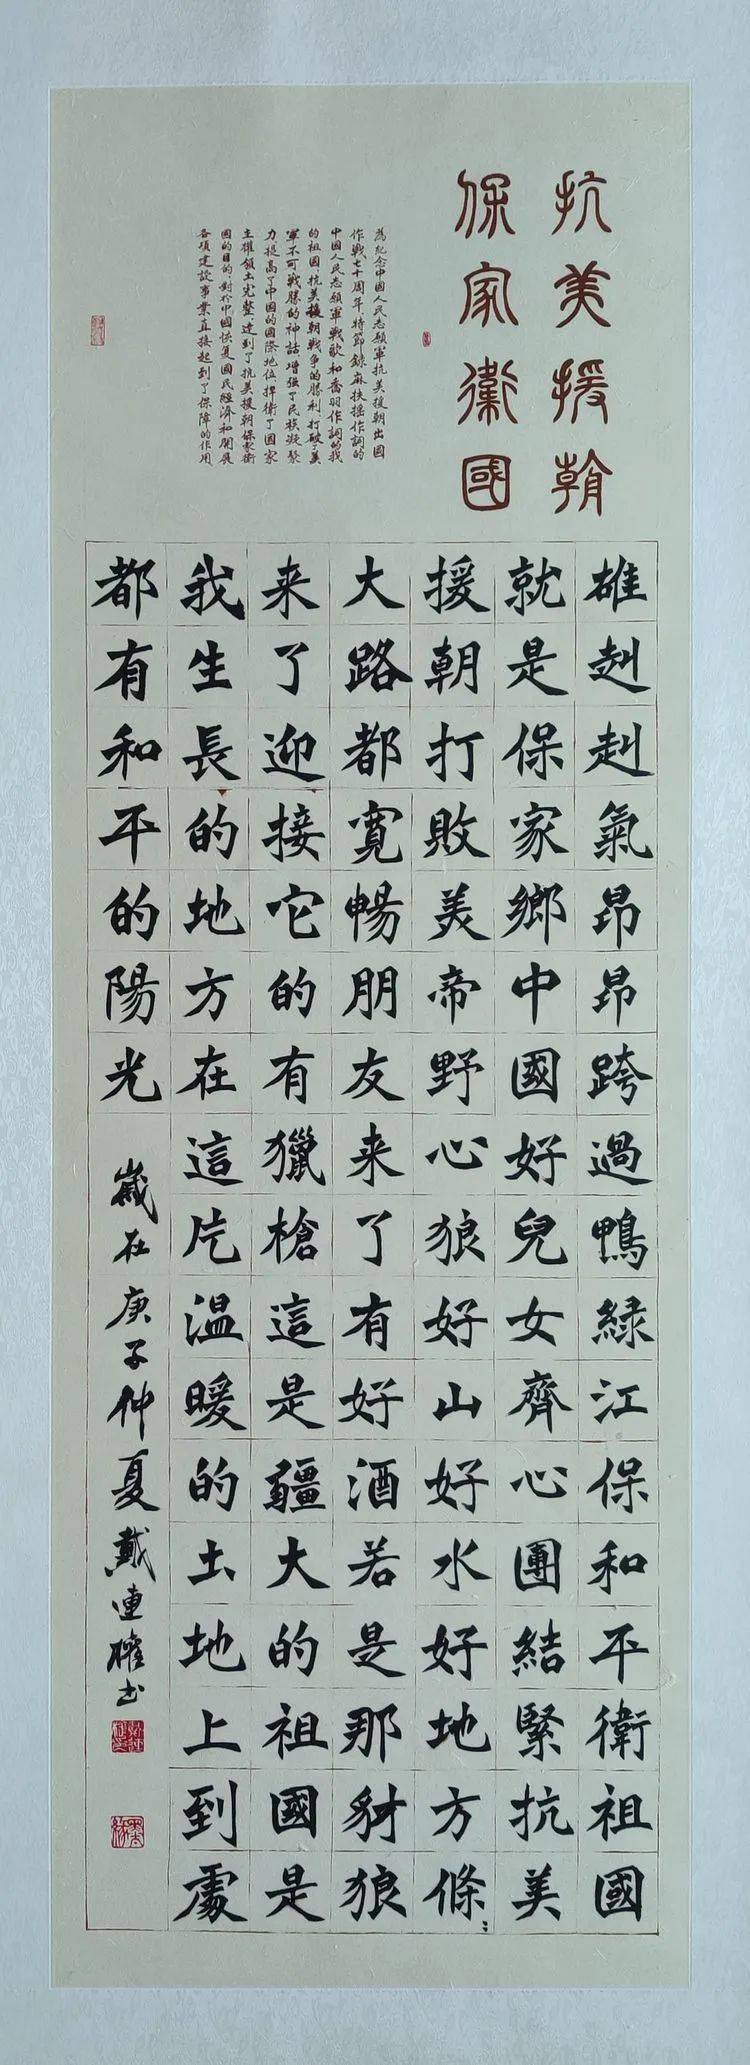 抗美援朝
保家衛國
為紀念中國人民志願軍抗美援朝出國
作戰七十周年特節錄麻扶摇作詞的
中國人民志願軍戰歌和喬羽作詞的我
的祖國抗美援朝戰争的勝利打破了美
軍不可戰勝的神話增强了民族凝聚
力提高了中国的國際地位捍衛了國家
主權領土完整達到了抗美援朝保家衛
國的目的對於中國恢复國民經濟和開展
各項建設事業直接起到了保障的作用
雄赳赳氣昂昂跨過鴨緑江保和平衛祖國
就是保家鄉中國好兒女齊心團結緊抗美
援朝打敗美帝野心狼好山好水好地方條〻
大路都寬暢朋友来了有好酒若是那豺狼
来了迎接它的有獵槍這是疆大的祖國是
我生長的地方在這片温暖的土地上到處
都有和平的陽光
歲在庚子仲夏戴連權书